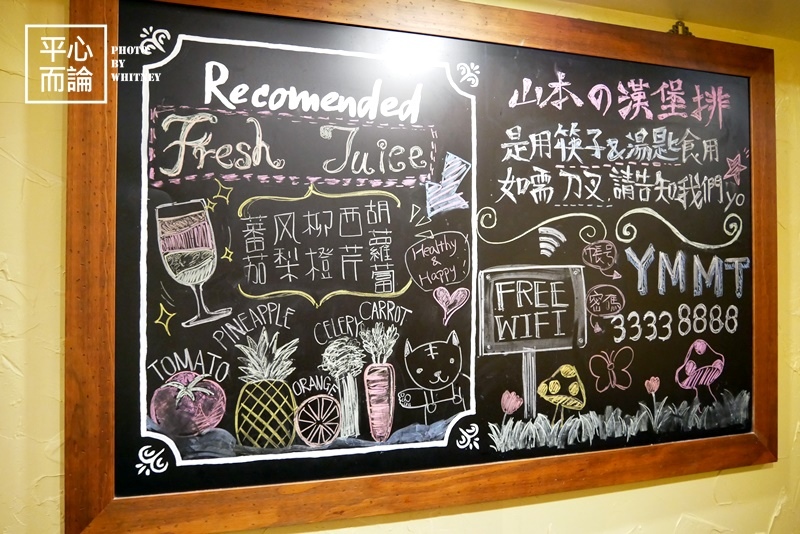 平心
而論
PHOTO
BY
WHITNEY
Recomended
Fresh Juice
胡蘿蔔
西芹
柳橙
风梨
蕃茄
Healthy
&
Happy!
TOMATO
PINEAPPLE
ORANGE
CELERY
CARROT
山本の漢堡排
是用筷子&湯匙食用
如需刀叉,請告知我們yo
FREE
WIFI
帳号
YMMT
密碼
33338888